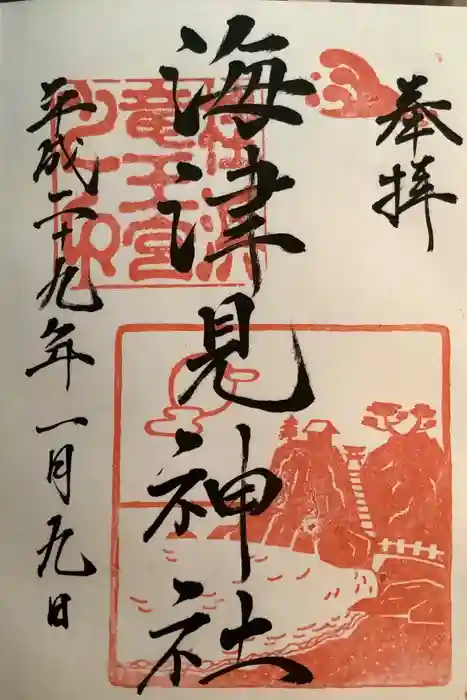 奉拝
海津見神社
平成二十九年一月九日
桂浜
竜王宮